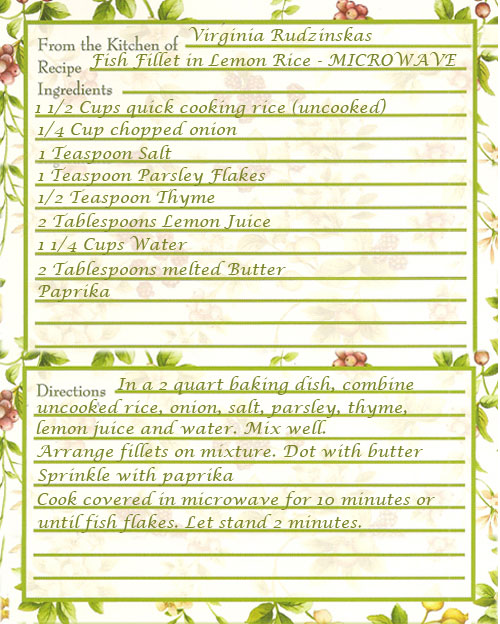 From the Kitchen of Virginia Rudzinskas
Recipe Fish Fillet in Lemon Rice - MICROWAVE
Ingredients
1 1/2 Cups quick cooking rice (uncooked)
1/4 Cup chopped onion
1 Teaspoon Salt
1 Teaspoon Parsley Flakes
1/2 Teaspoon Thyme
2 Tablespoons Lemon Juice
1 1/4 Cups Water
2 Tablespoons melted Butter
Paprika
Directions In a 2 quart baking dish, combine
uncooked rice, onion, salt, parsley, thyme,
lemon juice and water. Mix well.
Arrange fillets on mixture. Dot with butter
Sprinkle with paprika
Cook covered in microwave for 10 minutes or
until fish flakes. Let stand 2 minutes.